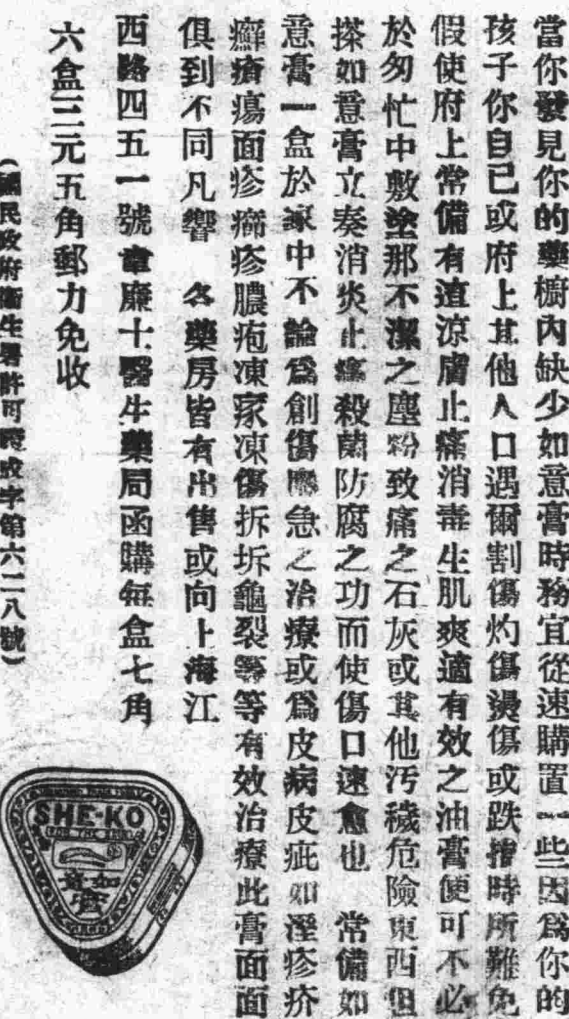 當你發見你的藥櫥內缺少如意膏時務宜從速購置一些因爲你的
孩子你自己或府上其他人口遇爾割傷灼傷燙傷或跌撞時所難免
假使府上常備有這涼膚止痛消毒生肌爽適有效之油膏便可不必
於匆忙中敷塗那不潔之塵粉致痛之石灰或其他汚穢危險東西但
搽如意膏立奏消炎止痛殺菌防腐之功而使傷口速愈也 常備如
意膏一盒於家中不論爲創傷應急之治療或爲皮病皮疵如溼疹疥
癬瘡瘍面疹癤疹膿疱凍瘃凍傷拆坼龜裂等等有效治療此膏面面
俱到不同凡響 各藥房皆有出售或向上海江
西路四五一號韋廉士醫生藥局函購每盒七角
六盒三元五角郵力免收
(國民政府衛生署許可證成字第六二八號)
SHE-KO
FOR THE SKIN
如意
膏